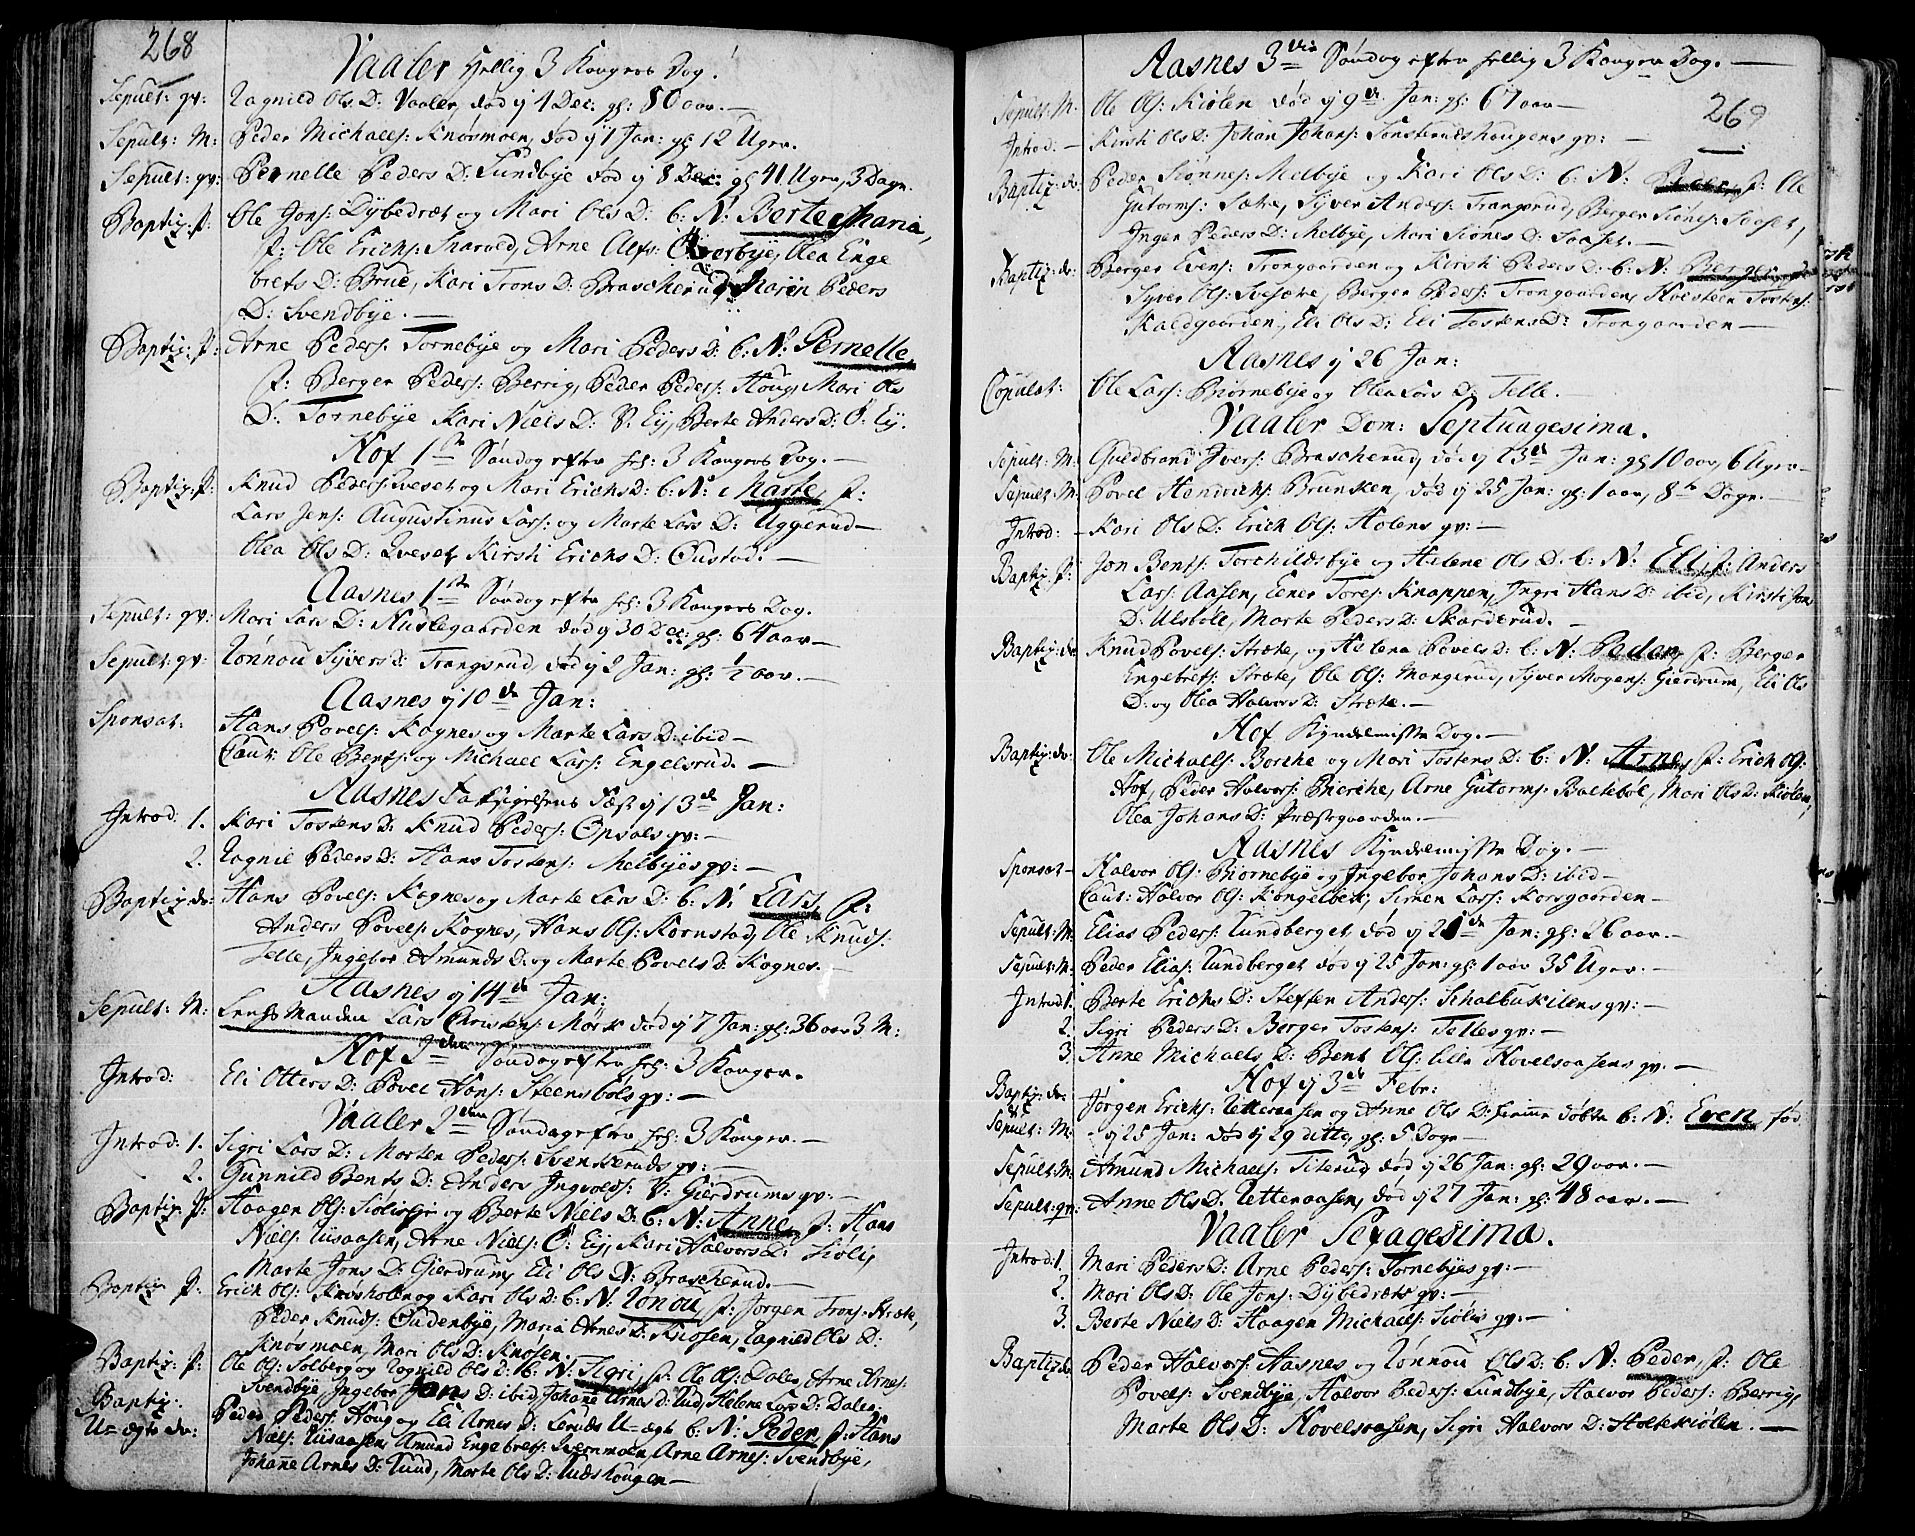 268
Vaaler Hellig 3 Kongers Dag.
Sepult: qv: Ragnild Ols D: Vaaler, død ÿ 4 Dec: gl: 80 aar.—
Sepult: M: Peder Michaels: Knøsmoen, død ÿ 1 Jan: gl: 12 Uger.
Sepult: qv: Pernelle Peders D: Sundbÿe død ÿ 8 Dec: gl: 41 Uger, 3 Dage.
Baptiz: P: Ole Jons: Dÿbedræt og Mari Ols D: b: N: Berte Maria,
F: Ole Erichs: Skarold, Arne Alfs: Overbÿe, Olea Enge
brets D: Brue, Kari Trons D: Brascherud, Maren Peders
D: Svendbÿe.—
Baptiz: P: Arne Peders: Tornebÿe og Mari Peders D: b: N: Pernelle,
F: Berger Peders: Berrig, Peder Peders: Houg, Mari Ols
D: Tornebÿe Kari Niels D: V: Eÿ, Berte Anders D: Ø: Eÿ.
Hof 1ste Søndag efter hel: 3 Kongers Dag.—
Baptiz: P: Knud Peders: Qveset og Mari Erichs D: b: N: Marte F:
Lars Jens: Augustinus Lars: og Marte Lars D: Uggerud—
Olea Ols D: Qveset, Kirsti Erichs D: Oustad.—
Aasnes 1ste Søndag efter hel: 3 Kongers Dag.
Sepult: qv: Mari Lars D: Huslegaarden død ÿ 30 Dec: gl: 64 aar—
Sepult: qv: Rønnou Sÿvers D: Trangsrud, død ÿ 2 Jan: gl: 1/2 aar.—
Aasnes ÿ 10de Jan:
Sponsat: Hans Povels: Kognes og Marte Lars D: ibid—
Caut: Ole Bents: og Michael Lars: Engelsrud.—
Aasnes Taksigelsens Fæst ÿ 13de Jan:
Introd: 1. Kari Tostens D: Knud Peders: Opsals qv:—
2. Ragnil Peders D: Hans Tostens: Melbÿes qv:—
Baptiz: do: Hans Povels: Kognes og Marte Lars D: b: N: Lars, F:
Anders Povels: Kognes, Hans Ols: Kornstad, Ole Knuds:
Telle, Ingebor Amunds D: og Marte Povels D: Kognes.—
Aasnes ÿ 14de Jan:
Sepult: M: Lensmanden Lars Christens: Mørk død ÿ 7 Jan: gl: 36 aar 3 M:
Hof 2den Søndag efter hel: 3 Konger.
Introd: Eli Otters D: Povel Hans: Steensbøls qv:—
Vaaler 2den Søndag efter hel: 3 Konger.—
Introd: 1. Sigri Lars D: Morten Peders: Svenkeruds qv:—
2. Gunnild Bents D: Anders Ingvolds: V: Gierdrums qv:—
Baptiz: P: Haagen Ols: Siølie og Berte Niels D: b: N: Anne, F: Hans
Niels: Risaasen, Arne Niels: Ø: Eÿ, Kari Halvors D: Siøli,
Marte Jons D: Gierdrum, Eli Ols D: Brascherud.—
Baptiz: P: Erich Ols: Knosholen og Kari Ols D: b: N: Rønou, F: Jørgen Trons: Stræte,
Peder Knuds: Oudenbÿe, Maria Arnes D: Knosen, Ragnild Ols D:
Knøsmoen, Mari Ols D: Knosen.
Baptiz: P: Ole Ols: Solberg og Ragnild Ols D: b: N: Sigri, F: Ole Ols: Dalen Arne Arnes:
Svendbÿe, Ingebor Jans D: ibid, Johanne Arnes D: Rud, Helene Lars D: Dalen.
Baptiz: U=ægte do: Peder Peders: Houg og Eli Arnes D: Leruds U=ægte b: N: Peder, F: Hans
Niels: Risaasen, Amund Engebrets: Svenmoen, Arne Arnes: Svendbÿe,
Johanne Arnes D: Rud, Marte Ols D: Rudshougen—
Aasnes 3die Søndag efter hellig 3 Konger Dag.—
269
Sepult: M: Ole Ols: Kiølen død ÿ 9de Jan: gl: 67 aar—
Introd:— Kirsti Ols D: Johan Johans: Sonsterudshaugens qv:—
Baptiz: do: Peder Siønnes: Melbÿe og Kari Ols D: b: N: F: Ole
Gutorms: Sætre, Sÿver Anders: Trangsrud, Berger Siønes: Saaset,
Inger Peders D: Melbÿe, Mari Siønes D: Saaset.—
Baptiz: do: Berger Evens: Trongaarden og Kirsti Peders D: b: N: Berger
Sÿver Ols: Svesætre, Berger Peders: Trongaarden, Holsteen Tostens:
Kaldgaarden, Eli Ols D: Eli Tostens D: Trongaarden—
Aasnes ÿ 26 Jan:
Copulat: Ole Lars: Biørnebÿe og Olea Lars D: Telle.—
Vaaler Dom: Septuagesima.
Sepult: M: Guldbrand Ivers: Brascherud, død ÿ 23de Jan: gl: 10 aar, 6 Uger—
Sepult: M: Povel Hendrichs: Brunken, død ÿ 25 Jan: gl: 1 aar, 8te Dage.—
Introd:— Kari Ols D: Erich Ols: Holens qv:—
Baptiz: P: Jon Bents: Torchildsbÿe og Helene Ols D: b: N: Eli, F: Anders
Lars: Aasen, Eener Tores: Knappen, Ingri Hans D: ibid, Kirsti Jons
D: Ulsbøle, Marte Peders D: Skarderud.—
Baptiz: do Knud Povels: Stræte, og Helena Povels D: b: N: Peder, F: Berger
Engebrets: Stræte, Ole Ols: Mangerud, Sÿver Mogens: Gierdrum, Eli Ols
D: og Olea Halvors D: Stræte.—
Hof Kÿndelmisse Dag.—
Baptiz: do: Ole Michaels: Borche og Mari Tostens D: b: N: Arne, F: Erich Ols:
Hof, Peder Halvors: Bierche, Arne Gutorms: Baltebøl, Mari Ols D: Kiølen,
Olea Johans D: Præstegaarden.—
Aasnes Kÿndelmisse Dag.—
Sponsat— Halvor Ols: Biørnebÿe og Ingebor Johans D: ibid—
Caut: Halvor Ols: Kongelbek, Simen Lars: Korsgaarden—
Sepult: M: Elias Peders: Lundberget død ÿ 21de Jan: gl: 26 aar.—
Sepult: M: Peder Elias: Lundberget død ÿ 25 Jan: gl: 1 aar 35 Uger.—
Introd: 1. Berte Erichs D: Steffen Anders: Schalbukilens qv:—
2. Sigri Peders D: Berger Tostens: Telles qv:—
3. Anne Michaels D: Bent Ols: Lille Hovelsaasens qv.—
Hof ÿ 3de Febr:
Baptiz: do: & Sepult: M: Jørgen Erichs: Retteraasen og Anne Ols D: hiemme døbte b: N: Even, fød
ÿ 25 Jan: død ÿ 29 ditto, gl: 5 Dage—
Sepult: M: Amund Michaels: Titerud, død ÿ 26 Jan: gl: 29 aar.—
Sepult: qv: Anne Ols D: Rettenaasen, død ÿ 27 Jan: gl: 48 aar.—
Vaaler Sexagesima.
Introd: 1. Mari Peders D: Arne Peders: Tornebÿes qv:—
2. Mari Ols D: Ole Jons: Dÿbedræts qv:—
3. Berte Niels D: Haagen Michaels: Siølis qv:—
Baptiz: do Peder Halvors: Aasnes og Rønnou Ols D: b: N: Peder, F: Ole
Povels: Svendbÿe, Halvor Peders: Sundbÿe, Halvor Peders: Berrig,
Marte Ols D: Hovelsaasen, Sigri Halvors D: Holtekiølen.—